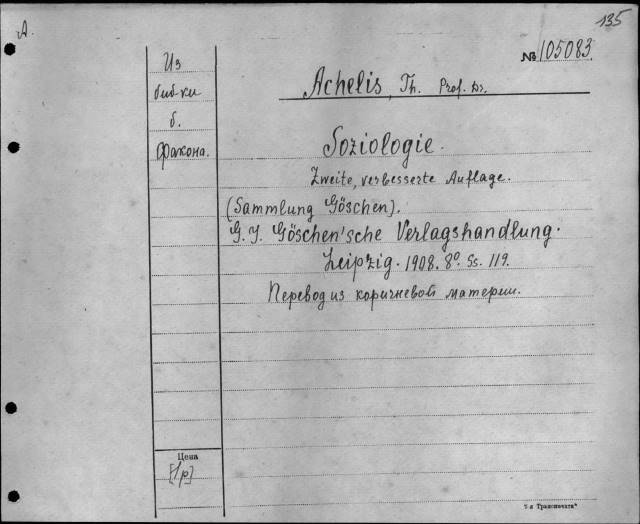 A.
135
№ 105083
Из
биб-ки
б.
Фракона.
Achelis, Th. Prof. Dr.
Soziologie.
Zweite, verbesserte Auflage.
(Sammlung Göschen).
G. J. Göschen'sche Verlagshandlung.
Leipzig. 1908. 8º. Ss. 119.
Перевод из коричневой материи.
Цена
[1р]
7-я Транспечать"